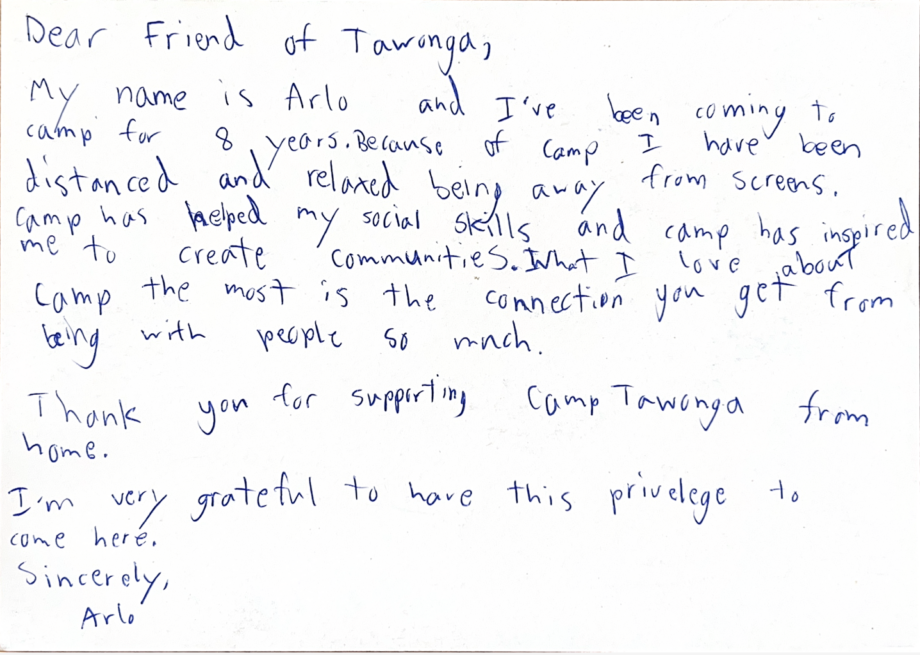 Dear Friend of Tawonga,
My name is Arlo and I've been coming to
camp for 8 years. Because of camp I have been
distanced and relaxed being away from screens.
Camp has helped my social skills and camp has inspired
me to create communities. What I love about
Camp the most is the connection you get from
being with people so much.
Thank you for supporting Camp Tawonga from
home.
I'm very grateful to have this privelege to
come here.
Sincerely,
Arlo